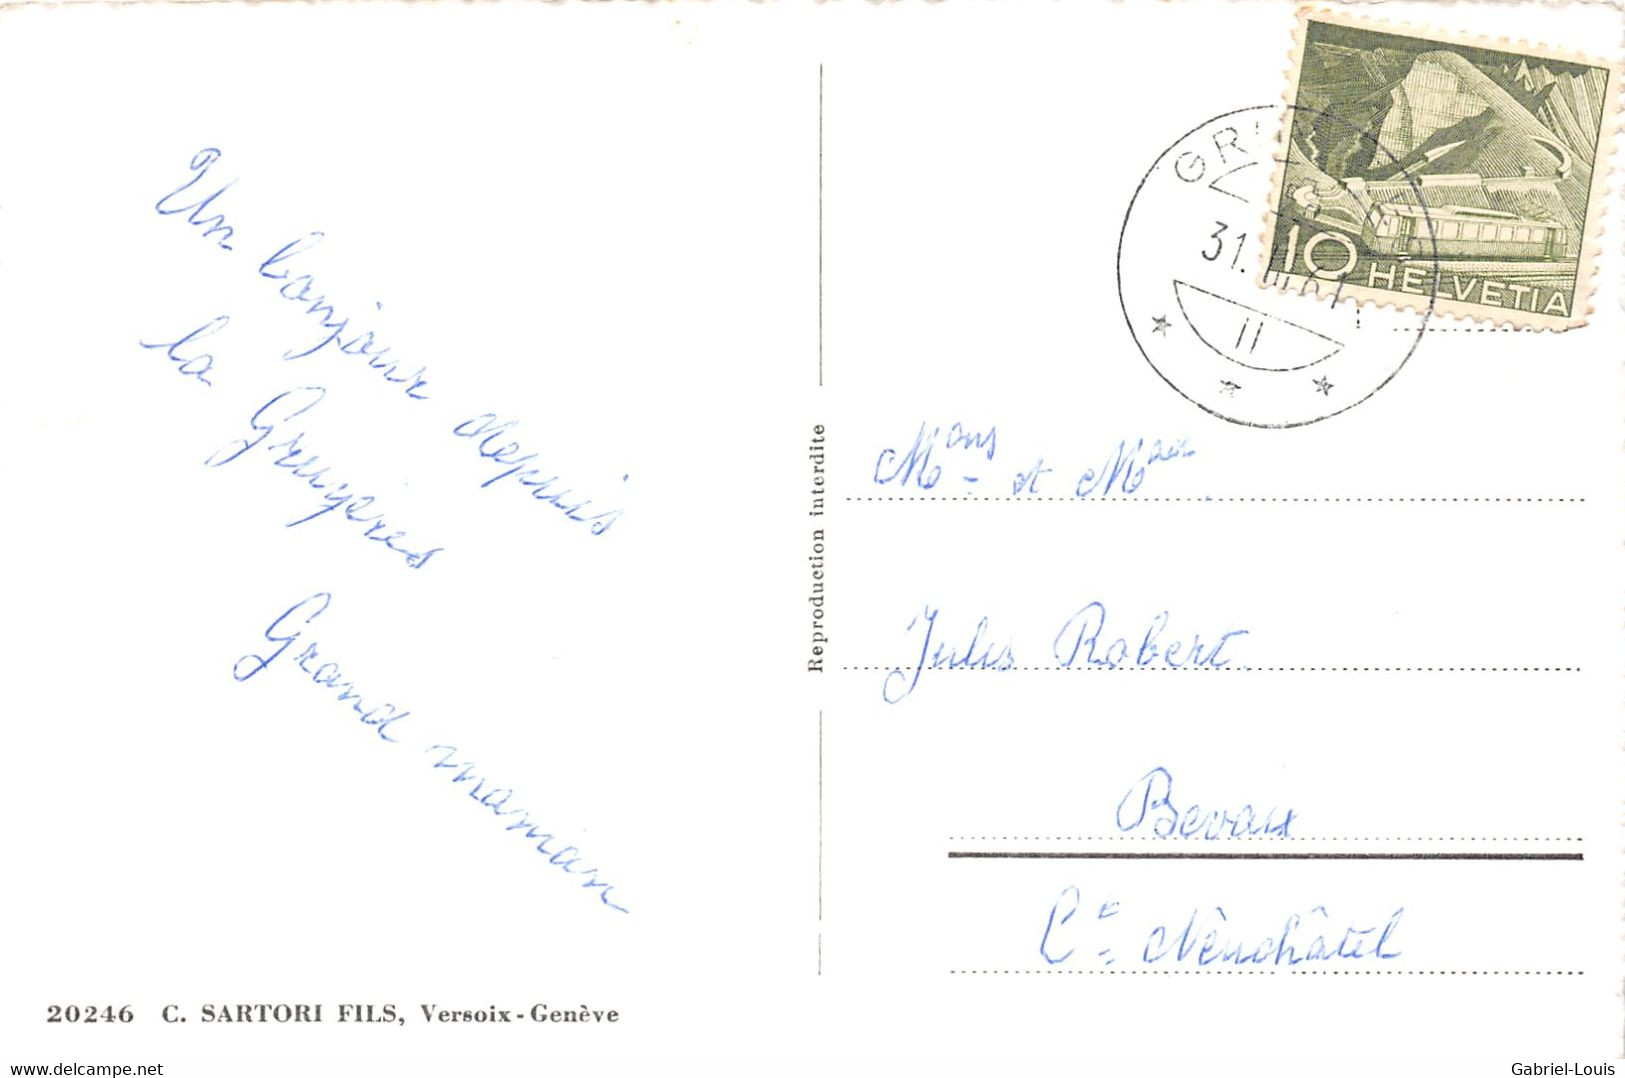 Un bonjour depuis
la Gruyères
Grand maman
20246 C. SARTORI FILS, Versoix-Genève
Reproduction interdite
31.
II
10 HELVETIA
Mons et
Jules Robert.
Bevaix
Ct Neuchâtel
www.delcampe.net
Gabriel-Louis